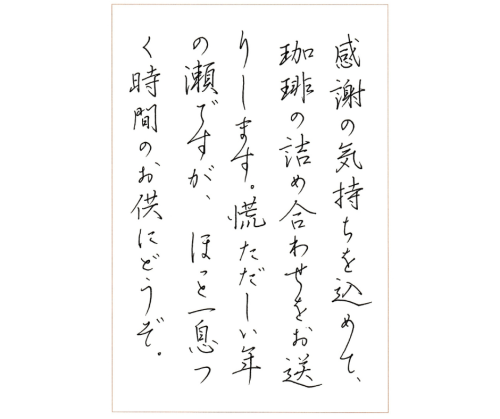 感謝の気持ちを込めて、
珈琲の詰め合わせをお送
りします。慌ただしい年
の瀬ですが、ほっと一息つ
く時間のお供にどうぞ。